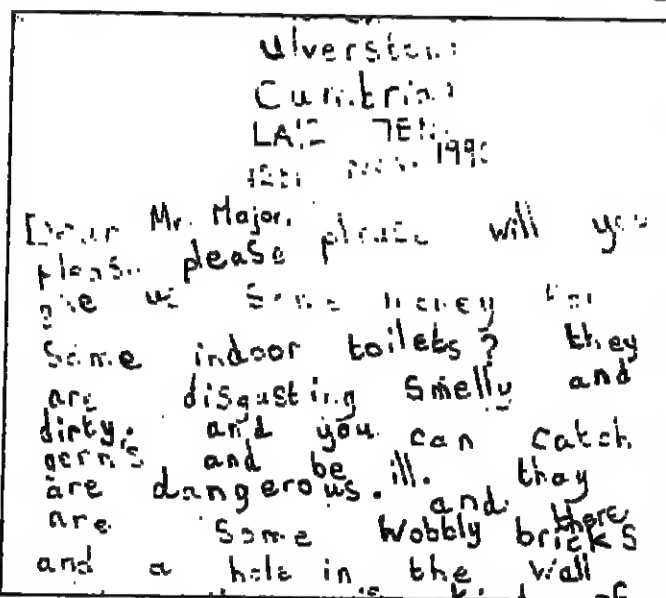 Ulverston
Cumbria
LA12 7E
199
Dear Mr. Major,
please please please will you
give us some money for
some indoor toilets? they
are disgusting smelly and
dirty. and you can catch
germs and be ill. thay
are dangerous. and there
are some wobbly bricks
and a hole in the wall
of